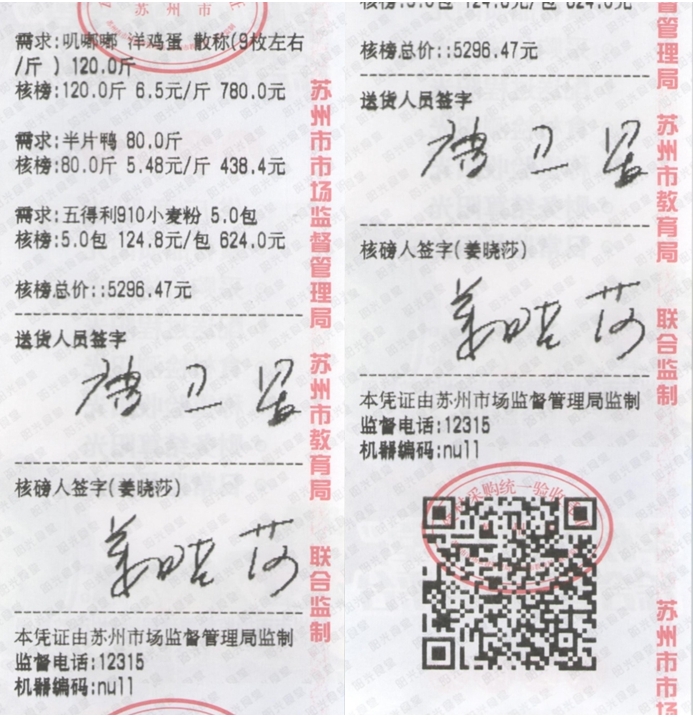 苏州市
需求:叽嘟嘟 洋鸡蛋 散称(9枚左右
/斤 ) 120.0斤
核榜:120.0斤 6.5元/斤 780.0元
需求:半片鸭 80.0斤
核榜:80.0斤 5.48元/斤 438.4元
需求:五得利910小麦粉 5.0包
核榜:5.0包 124.8元/包 624.0元
核榜总价::5296.47元
送货人员签字
核磅人签字(姜晓莎)
姜晓莎
本凭证由苏州市场监督管理局监制
监督电话:12315
机器编码:null
苏州市市场监督管理局 苏州市教育局 联合监制
核榜:5.0包 124.8元/包 624.0元
核榜总价::5296.47元
送货人员签字
核榜人签字(姜晓莎)
姜晓莎
本凭证由苏州市场监督管理局监制
监督电话:12315
机器编码:null
采购统一验收
督管理局 苏州市教育局 联合监制
苏州市市场